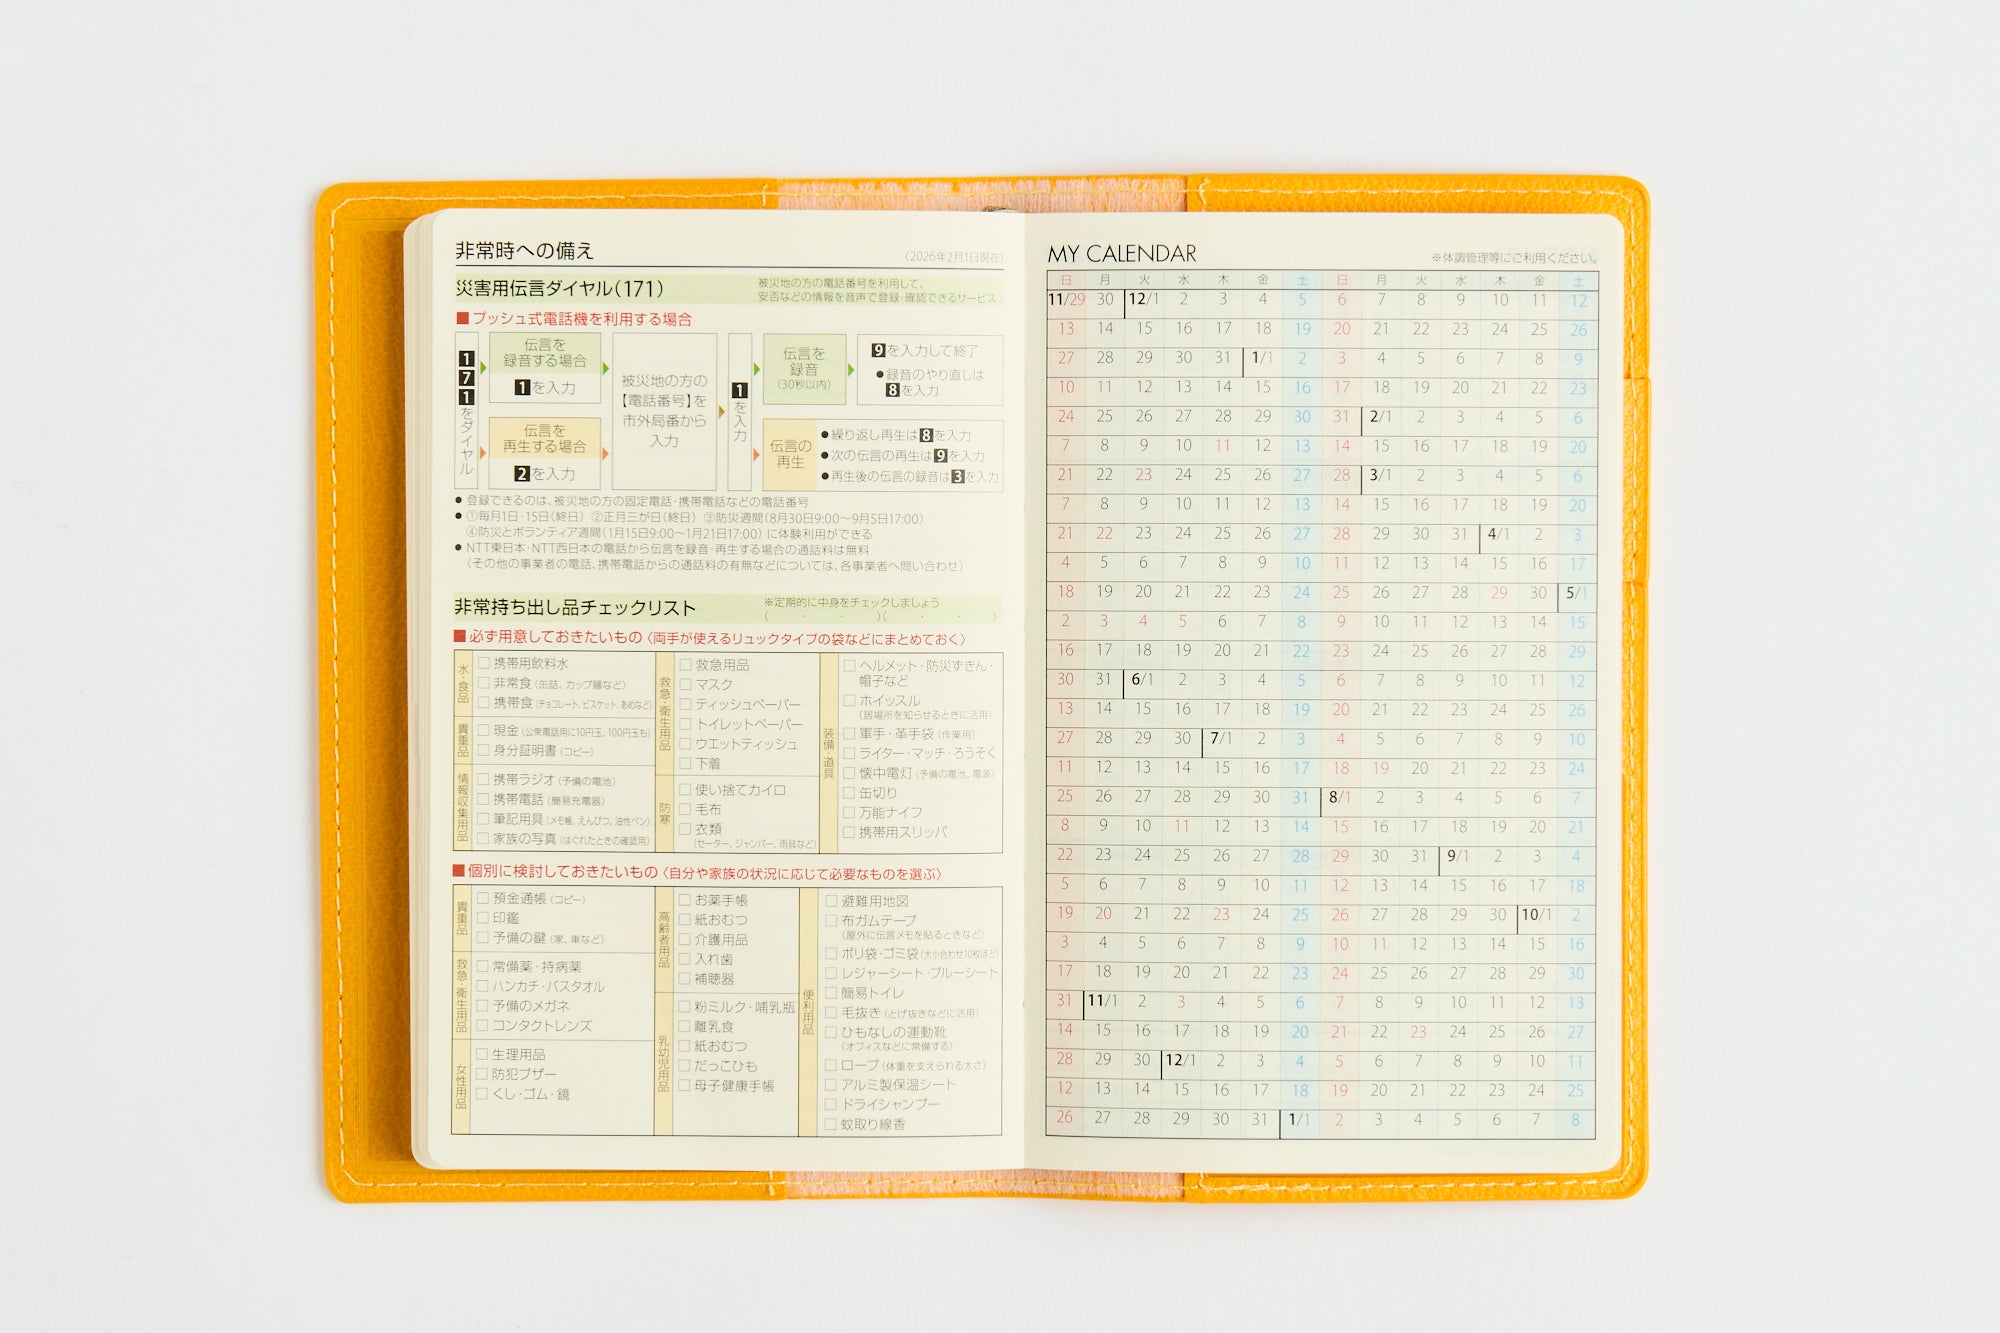 非常時への備え
(2026年2月1日現在)
災害用伝言ダイヤル(171)
被災地の方の電話番号を利用して、
安否などの情報を音声で登録・確認できるサービス
■ プッシュ式電話機を利用する場合
171をダイヤル
伝言を
録音する場合
1を入力
伝言を
再生する場合
2を入力
被災地の方の
【電話番号】を
市外局番から
入力
1を入力
伝言を
録音
(30秒以内)
9を入力して終了
●録音のやり直しは
8を入力
伝言の
再生
●繰り返し再生は8を入力
●次の伝言の再生は9を入力
●再生後の伝言の録音は3を入力
● 登録できるのは、被災地の方の固定電話・携帯電話などの電話番号
● ①毎月1日・15日(終日) ②正月三が日(終日) ③防災週間(8月30日9:00〜9月5日17:00)
④防災とボランティア週間(1月15日9:00〜1月21日17:00) に体験利用ができる
● NTT東日本・NTT西日本の電話から伝言を録音・再生する場合の通話料は無料
(その他の事業者の電話、携帯電話からの通話料の有無などについては、各事業者へ問い合わせ)
非常持ち出し品チェックリスト
※定期的に中身をチェックしましょう
( ・ ・ )( ・ ・ )
■ 必ず用意しておきたいもの〈両手が使えるリュックタイプの袋などにまとめておく〉
水・食品
□ 携帯用飲料水
□ 非常食(缶詰、カップ麺など)
□ 携帯食(チョコレート、ビスケット、あめなど)
貴重品
□ 現金(公衆電話用に10円玉、100円玉も)
□ 身分証明書(コピー)
情報収集用品
□ 携帯ラジオ(予備の電池)
□ 携帯電話(簡易充電器)
□ 筆記用具(メモ帳、えんぴつ、油性ペン)
□ 家族の写真(はぐれたときの確認用)
救急・衛生用品
□ 救急用品
□ マスク
□ ティッシュペーパー
□ トイレットペーパー
□ ウエットティッシュ
□ 下着
防寒
□ 使い捨てカイロ
□ 毛布
□ 衣類
(セーター、ジャンパー、雨具など)
装備・道具
□ ヘルメット・防災ずきん・
帽子など
□ ホイッスル
(居場所を知らせるときに活用)
□ 軍手・革手袋(作業用)
□ ライター・マッチ・ろうそく
□ 懐中電灯(予備の電池、電源)
□ 缶切り
□ 万能ナイフ
□ 携帯用スリッパ
■ 個別に検討しておきたいもの〈自分や家族の状況に応じて必要なものを選ぶ〉
貴重品
□ 預金通帳(コピー)
□ 印鑑
□ 予備の鍵(家、車など)
救急・衛生用品
□ 常備薬・持病薬
□ ハンカチ・バスタオル
□ 予備のメガネ
□ コンタクトレンズ
女性用品
□ 生理用品
□ 防犯ブザー
□ くし・ゴム・鏡
高齢者用品
□ お薬手帳
□ 紙おむつ
□ 介護用品
□ 入れ歯
□ 補聴器
乳幼児用品
□ 粉ミルク・哺乳瓶
□ 離乳食
□ 紙おむつ
□ だっこひも
□ 母子健康手帳
便利用品
□ 避難用地図
□ 布ガムテープ
(屋外に伝言メモを貼るときなど)
□ ポリ袋・ゴミ袋(大小合わせ10枚ほど)
□ レジャーシート・ブルーシート
□ 簡易トイレ
□ 毛抜き(とげ抜きなどに活用)
□ ひもなしの運動靴
(オフィスなどに常備する)
□ ロープ(体重を支えられる太さ)
□ アルミ製保温シート
□ ドライシャンプー
□ 蚊取り線香
MY CALENDAR
※体調管理等にご利用ください。
日 月 火 水 木 金 土 日 月 火 水 木 金 土
11/29 30 12/1 2 3 4 5 6 7 8 9 10 11 12
13 14 15 16 17 18 19 20 21 22 23 24 25 26
27 28 29 30 31 1/1 2 3 4 5 6 7 8 9
10 11 12 13 14 15 16 17 18 19 20 21 22 23
24 25 26 27 28 29 30 31 2/1 2 3 4 5 6
7 8 9 10 11 12 13 14 15 16 17 18 19 20
21 22 23 24 25 26 27 28 3/1 2 3 4 5 6
7 8 9 10 11 12 13 14 15 16 17 18 19 20
21 22 23 24 25 26 27 28 29 30 31 4/1 2 3
4 5 6 7 8 9 10 11 12 13 14 15 16 17
18 19 20 21 22 23 24 25 26 27 28 29 30 5/1
2 3 4 5 6 7 8 9 10 11 12 13 14 15
16 17 18 19 20 21 22 23 24 25 26 27 28 29
30 31 6/1 2 3 4 5 6 7 8 9 10 11 12
13 14 15 16 17 18 19 20 21 22 23 24 25 26
27 28 29 30 7/1 2 3 4 5 6 7 8 9 10
11 12 13 14 15 16 17 18 19 20 21 22 23 24
25 26 27 28 29 30 31 8/1 2 3 4 5 6 7
8 9 10 11 12 13 14 15 16 17 18 19 20 21
22 23 24 25 26 27 28 29 30 31 9/1 2 3 4
5 6 7 8 9 10 11 12 13 14 15 16 17 18
19 20 21 22 23 24 25 26 27 28 29 30 10/1 2
3 4 5 6 7 8 9 10 11 12 13 14 15 16
17 18 19 20 21 22 23 24 25 26 27 28 29 30
31 11/1 2 3 4 5 6 7 8 9 10 11 12 13
14 15 16 17 18 19 20 21 22 23 24 25 26 27
28 29 30 12/1 2 3 4 5 6 7 8 9 10 11
12 13 14 15 16 17 18 19 20 21 22 23 24 25
26 27 28 29 30 31 1/1 2 3 4 5 6 7 8